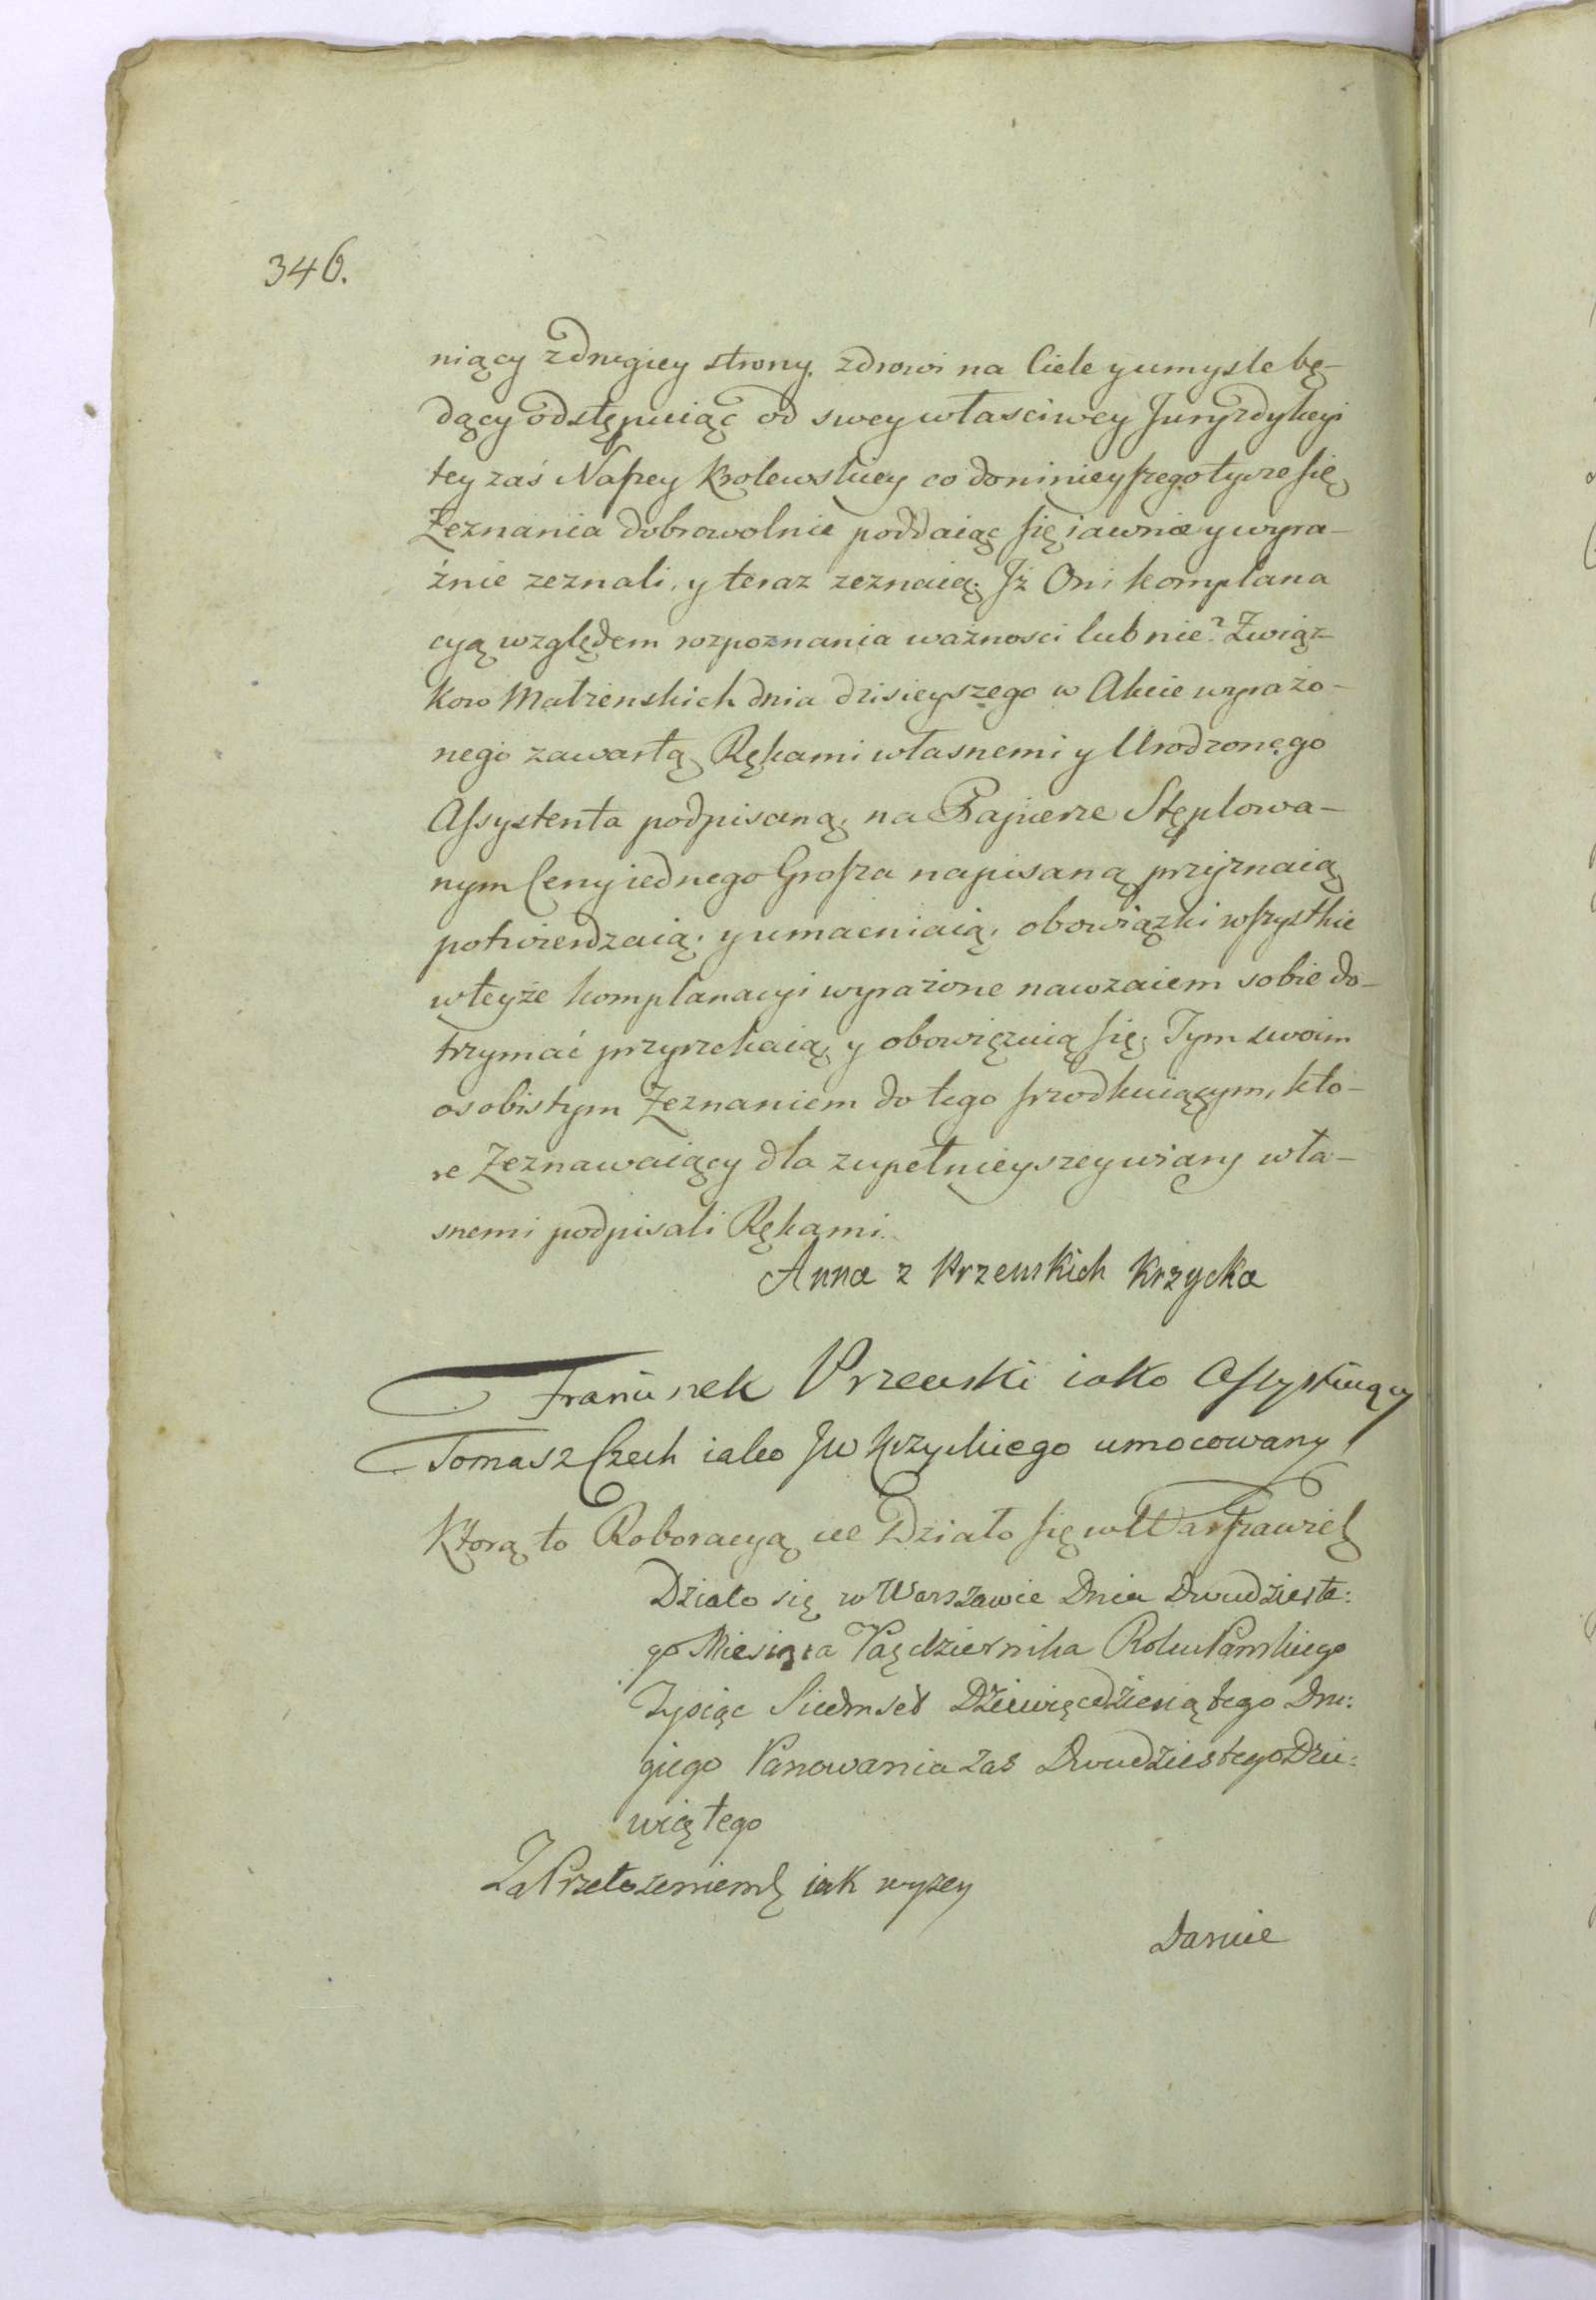 346.
niący z drugiey strony. zdrowi na Ciele y umysle bę-
dący odstępuiąc od swey własciwey Juryzdykcyi
tey zaś Naszey Krolewskiey co do ninieyszego tycze się
Zeznania dobrowolnie poddaiąc się iawnie y wyra-
źnie zeznali, y teraz zeznaią. Jż Oni komplana
cyą względem rozpoznania ważnosci lub nie? Związ-
kow Małzenskich dnia dzisieyszego w Akcie wyrażo-
nego zawartą Rękami własnemi y Urodzonego
Assystenta podpisaną, na Papierze Stęplowa-
nym Ceny iednego Grosza napisaną przyznaią
potwierdzaią, y umacniaią, obowiązki wszystkie
w teyże komplanacyi wyrażone nawzaiem sobie do-
trzymać przyrzekaią, y obowięzuią się, Tym swoim
osobistym Zeznaniem do tego srzodkuiącym, kto-
re Zeznawaiący dla zupełnieyszey wiary wła-
snemi podpisali Rękami.
Anna z Przewskich Krzycka
Franciszek Przewski iako Assystuiący
Tomasz Czech iako JW Krzyckiego umocowany
Którą to Roboracyą etc Działo się w Warszawie
Działo się w Warszawie Dnia Dwudzieste:
go Miesiąca Pazdziernika Roku Panskiego
Tysiąc Siedmset Dziewięcdziesiątego Dru:
giego Panowania zas Dwudziestego Dzie:
wiątego
Za Przełozeniem iak wyzey